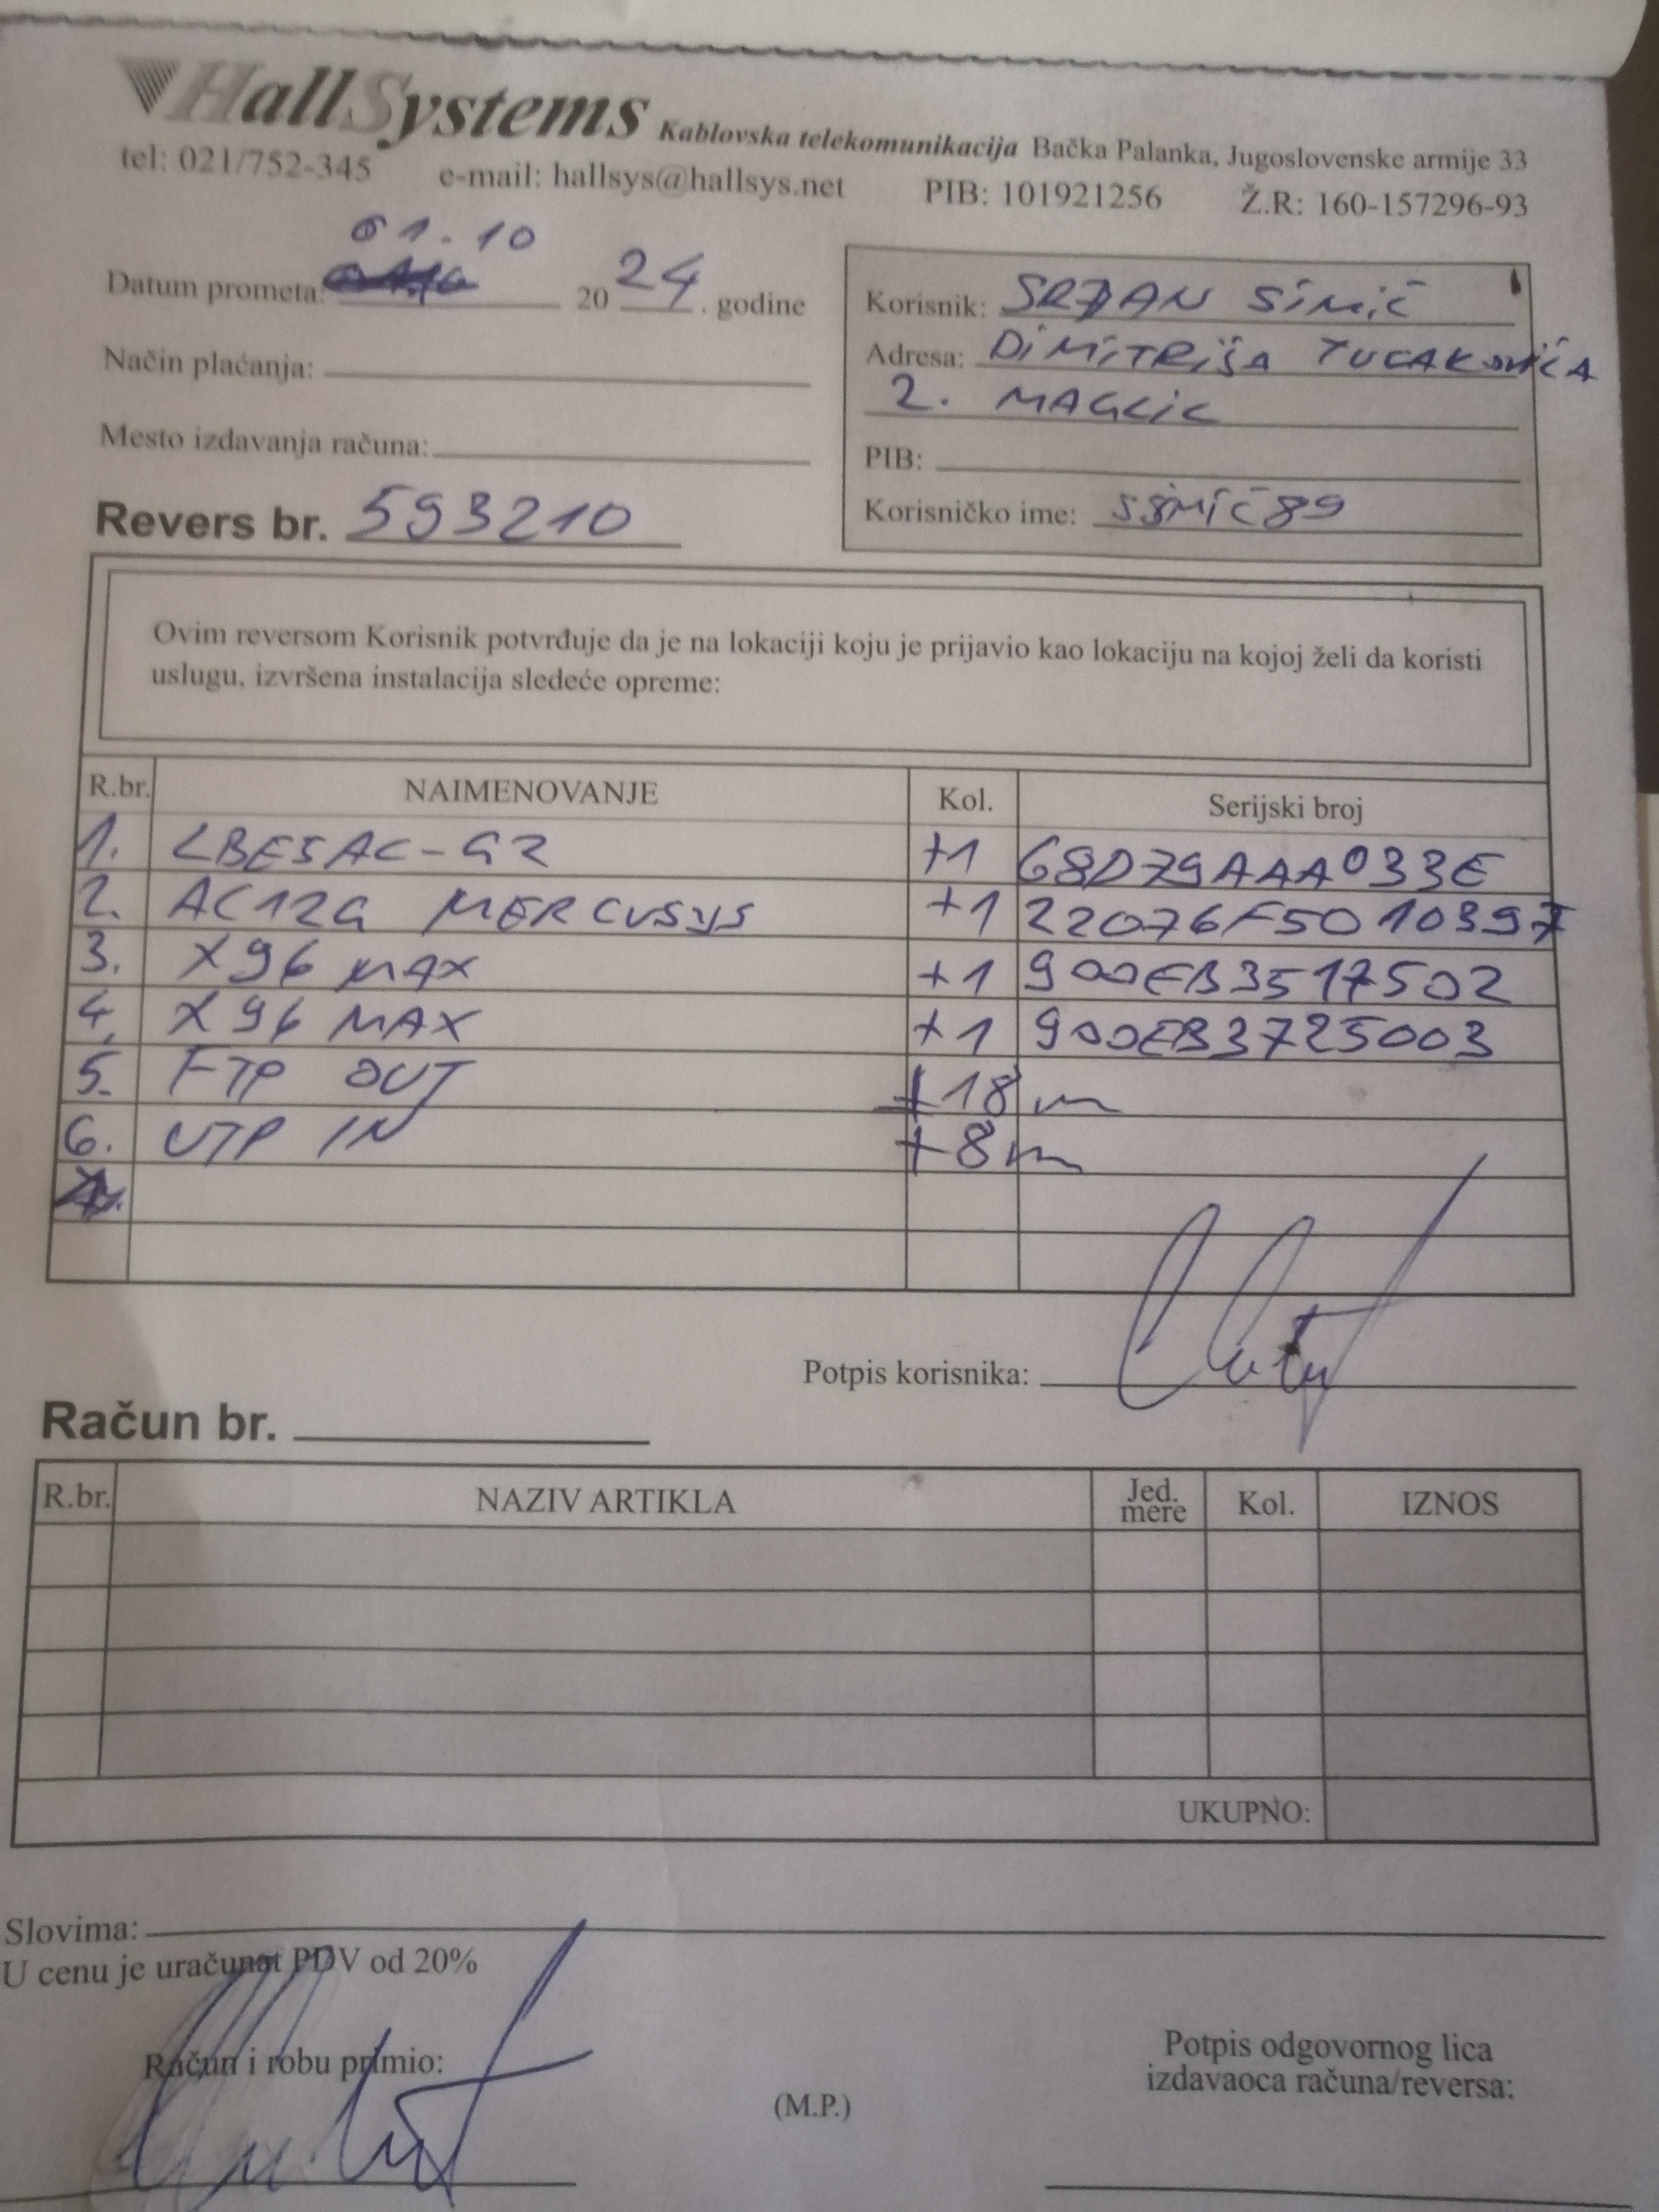 HallSystems Kablovska telekomunikacija Bačka Palanka, Jugoslovenske armije 33
tel: 021/752-345 e-mail: hallsys@hallsys.net PIB: 101921256 Ž.R: 160-157296-93
01.10
Datum prometa: 2024. godine
Korisnik: SRĐAN SIMIĆ
Način plaćanja:
Adresa: DIMITRIŠA TUCAKOVIĆA
2. MAGLIC
Mesto izdavanja računa:
PIB:
Revers br. 593210
Korisničko ime: SSMIĆ89
Ovim reversom Korisnik potvrđuje da je na lokaciji koju je prijavio kao lokaciju na kojoj želi da koristi
uslugu, izvršena instalacija sledeće opreme:
R.br. NAIMENOVANJE Kol. Serijski broj
1. LBE5AC-G2 +1 68D79AAA033E
2. AC12G MERCUSYS +1 22076F5010397
3. X96 MAX +1 900EB3517502
4. X96 MAX +1 900EB3725003
5. FTP OUT +18m
6. UTP IN +8m
Potpis korisnika:
Račun br.
R.br. NAZIV ARTIKLA Jed. mere Kol. IZNOS
UKUPNO:
Slovima:
U cenu je uračunat PDV od 20%
Račun i robu primio:
(M.P.)
Potpis odgovornog lica
izdavaoca računa/reversa: